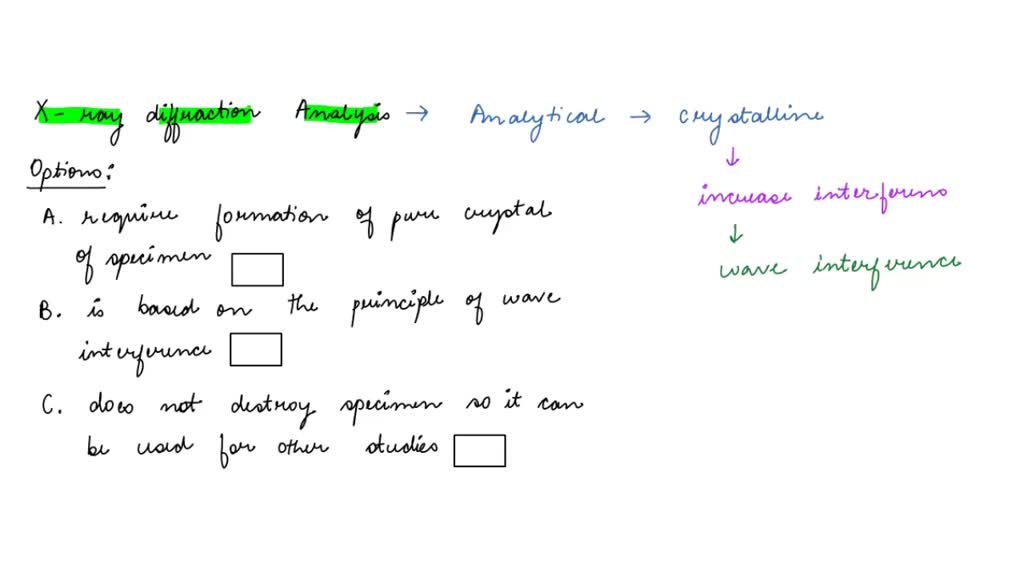 X-ray diffraction Analysis → Analytical → crystalline
↓
increase interferns
↓
wave interference
Options:
A. require formation of pure crystal
of specimen
B. is based on the principle of wave
interference
C. does not destroy specimen so it can
be used for other studies